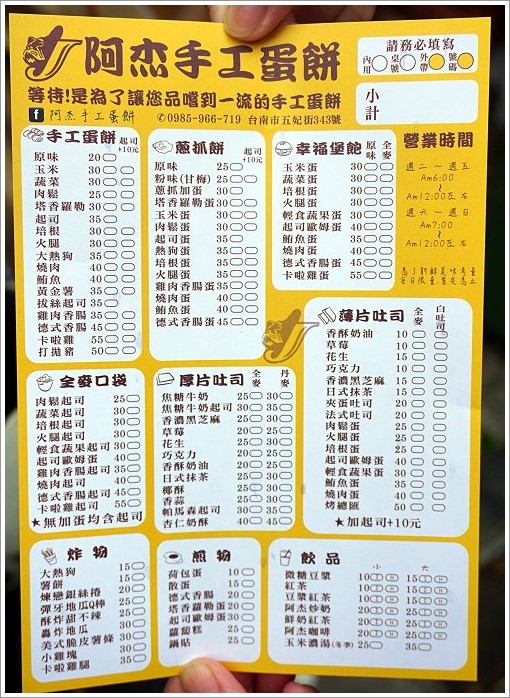 阿杰手工蛋餅
等待!是為了讓您品嚐到一流的手工蛋餅
f 阿杰手工蛋餅 ✆0985-966-719 台南市五妃街343號
請務必填寫
內用 桌號 外帶 號碼
小計
手工蛋餅 起司+10元
原味 20
玉米 30
蔬菜 30
肉鬆 25
塔香蘿勒 30
起司 35
培根 30
火腿 30
大熱狗 35
燒肉 40
鮪魚 40
黃金薯 35
拔絲起司 35
雞肉香腸 35
德式香腸 45
卡啦雞 55
打拋豬 50
蔥抓餅 起司+10元
原味 25
粉味(甘梅) 25
蔥抓加蛋 30
塔香蘿蛋 30
玉米蛋 30
肉鬆蛋 30
起司蛋 35
熱狗蛋 35
培根蛋 35
火腿蛋 30
燒肉蛋 40
鮪魚蛋 40
德式香腸蛋 45
幸福堡飽 原味 全麥
玉米蛋 30
蔬菜蛋 30
培根蛋 30
火腿蛋 30
輕食蔬果蛋 30
起司歐姆蛋 40
鮪魚蛋 40
燒肉蛋 40
德式香腸蛋 45
卡啦雞蛋 55
營業時間
週二～週五
Am6:00
～
Am12:00左右
週六～週日
Am7:00
～
Am12:00左右
為了新鮮美味考量
每日限量售完為止
薄片吐司 全麥 白吐司
香酥奶油 10
草莓 10
花生 15
巧克力 10
香濃黑芝麻 15
日式抹茶 15
夾蛋吐司 20
法式吐司 20
肉鬆蛋 25
火腿蛋 25
培根蛋 25
起司歐姆蛋 40
輕食蔬果蛋 30
鮪魚蛋 35
燒肉蛋 40
烤總匯 50
★加起司+10元
全麥口袋
肉鬆起司 25
蔬菜起司 30
培根起司 30
火腿起司 30
輕食蔬果起司 30
起司歐姆蛋 40
雞肉香腸起司 35
燒肉起司 40
德式香腸起司 45
卡啦雞起司 55
★無加蛋均含起司
厚片吐司 全麥 丹麥
焦糖牛奶 25 30
焦糖牛奶起司 30 35
香濃黑芝麻 25 30
草莓 20 25
花生 25 30
巧克力 20 25
香酥奶油 20 25
日式抹茶 25 30
椰酥 25 30
香蒜 25 30
帕馬森起司 30 35
杏仁奶酥 40
炸物
大熱狗 15
薯餅 15
煉戀銀絲捲 20
彈牙地瓜Q棒 25
酥炸甜不辣 25
轟炸地瓜 30
美式脆皮薯條 30
小雞塊 30
卡啦雞腿 35
煎物
荷包蛋 10
散蛋 15
德式香腸 20
塔香蘿勒蛋 20
起司歐姆蛋 30
蘿蔔糕 25
鍋貼 25
飲品 小 大
微糖豆漿 10 15
紅茶 10 15
豆漿紅茶 10 15
阿杰炒奶 20 25
鮮奶紅茶 20 25
阿杰咖啡 20 25
玉米濃湯(冬季) 25 35